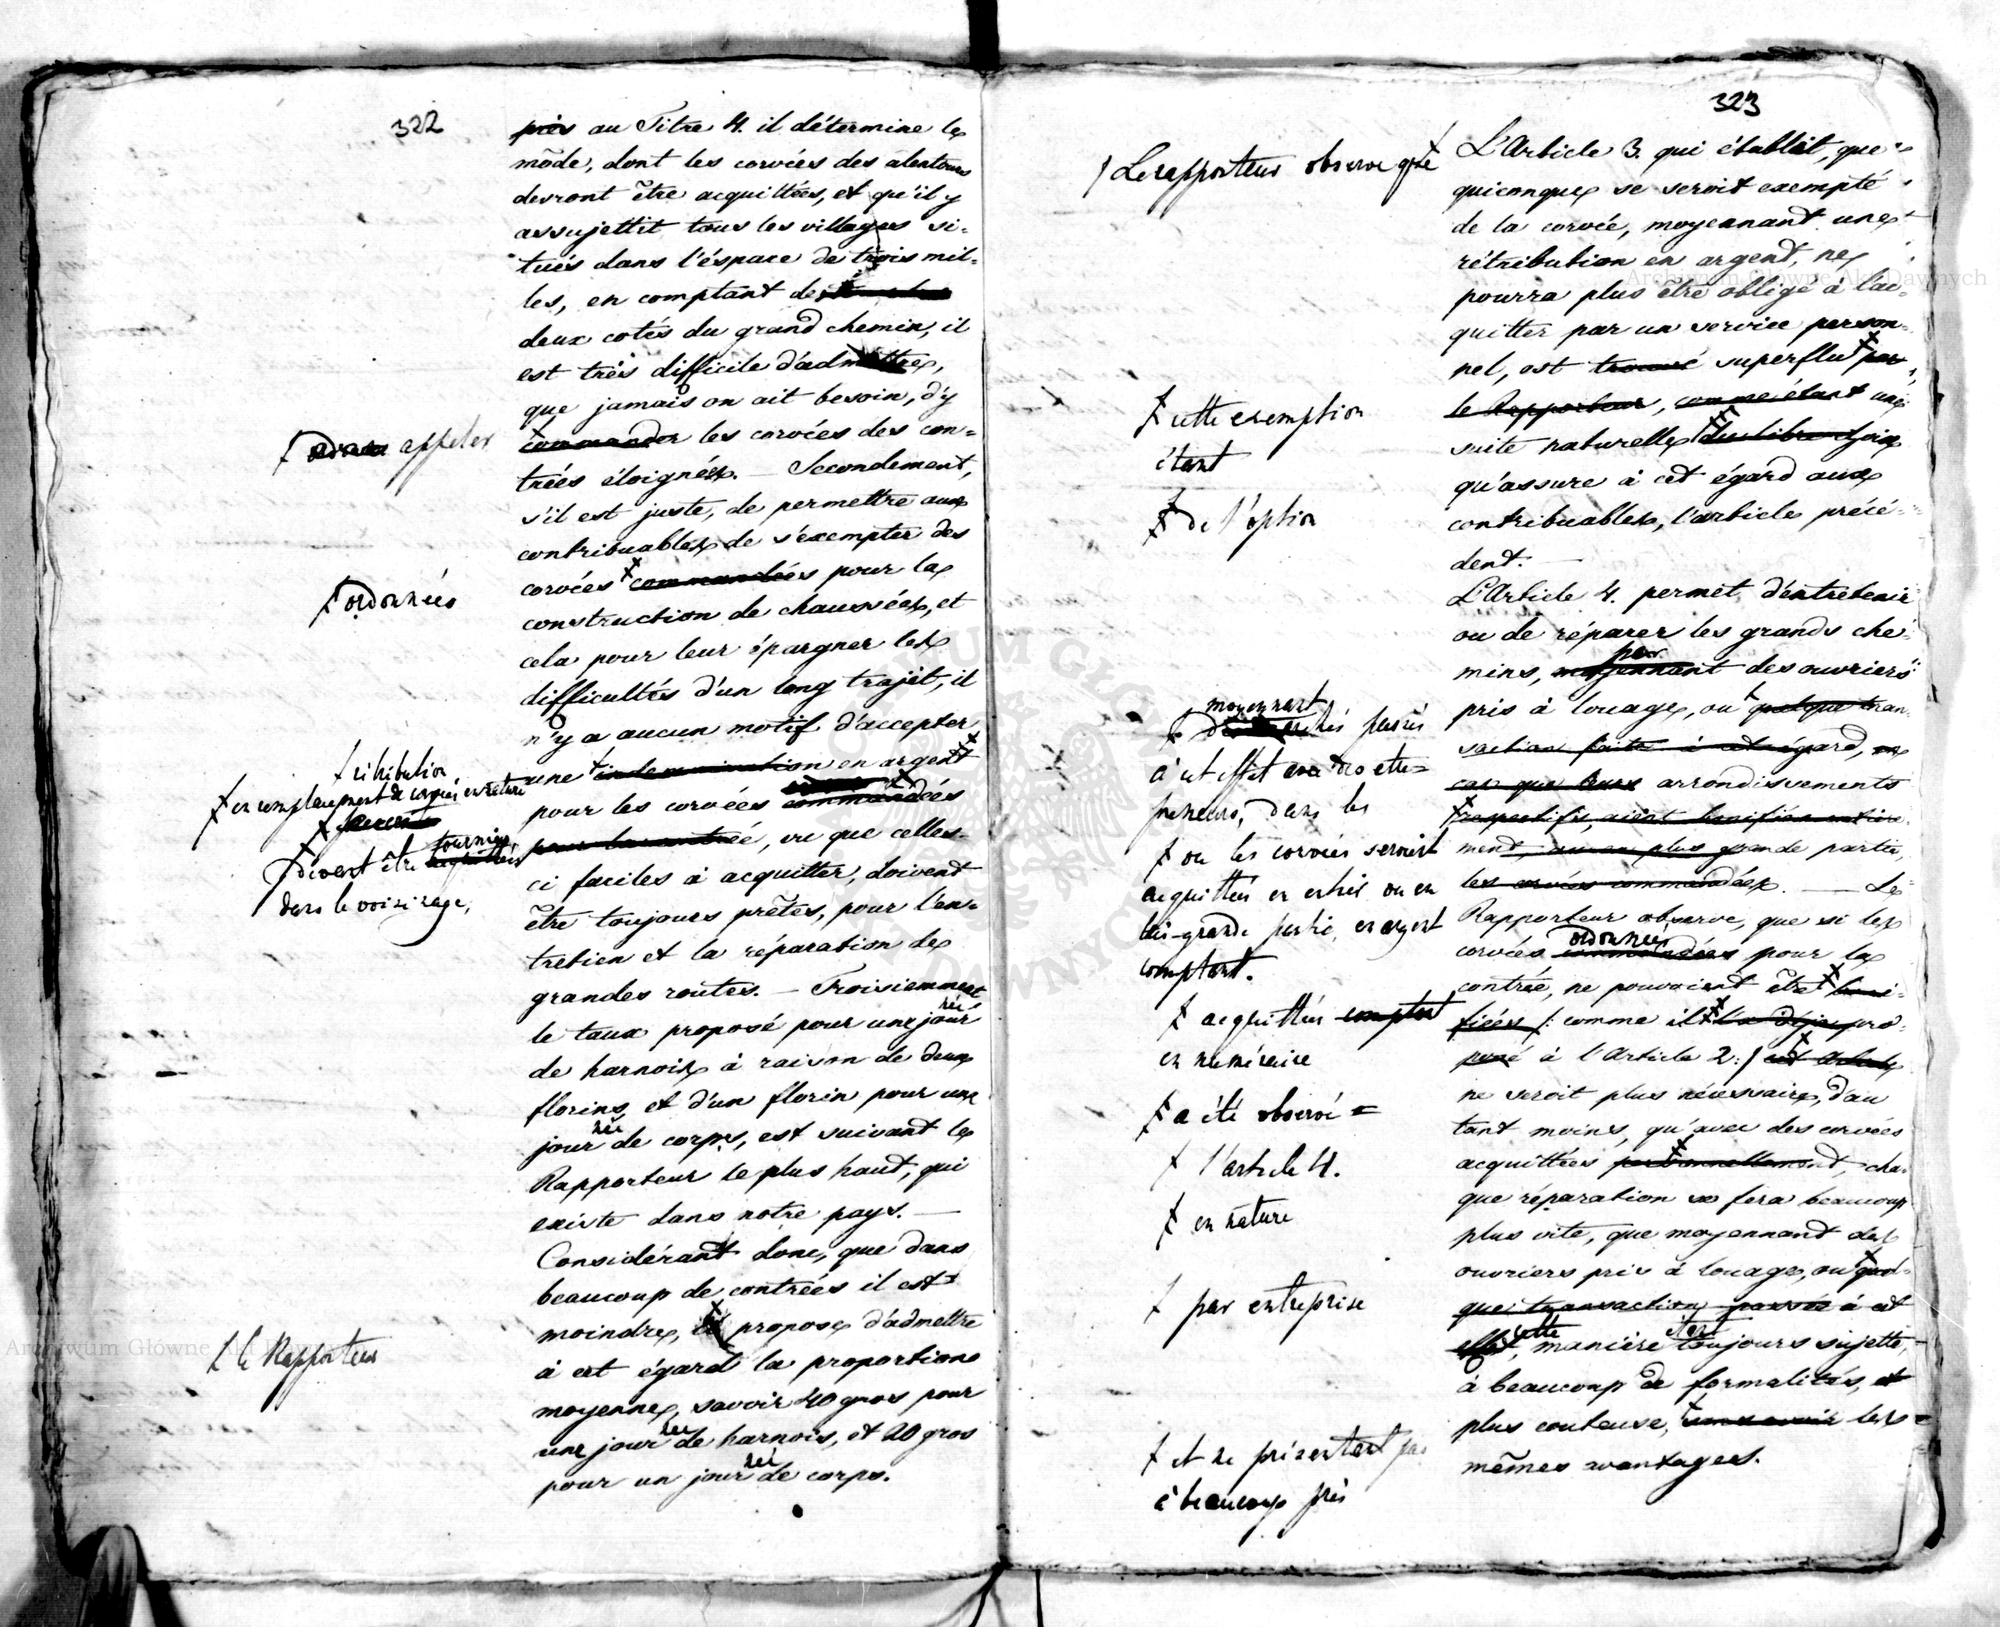 322
près au Titre 4. il détermine le
mode, dont les corvées des alentours
devront être acquittées, et qu'il y
assujettit tous les villages si-
tués dans l'éspace de trois mil-
les, en comptant des
deux cotés du grand chemin, il
est très difficile d'admettre,
que jamais on ait besoin, d'y
commander les corvées des con-
trées éloignées. — Secondement,
s'il est juste, de permettre aux
contribuables de s'éxempter des
corvées commandées pour la
construction de chaussées, et
cela pour leur épargner les
difficultés d'un long trajèt, il
n'y a aucun motif d'accepter
une indemnisation en argent
pour les corvées commandées
pour la contrée, vu que celles-
ci faciles à acquitter, doivent
être toujours prêtes, pour l'en-
tretien et la réparation de
grandes routes. — Troisiemment
le taux proposé pour une journée
de harnois à raison de deux
florins, et d'un florin pour une
journée de corps, est suivant le
Rapporteur le plus haut, qui
existe dans notre pays. —
Considérant donc, que dans
beaucoup de contrées il est
moindre, il propose d'admettre
à cet égard la proportion
moyenne, savoir 40 gros pour
une journée de harnois, et 20 gros
pour un journée de corps.
appeler
ordonnées
rétribution
en remplacement de corvées en nature
doivent être fournies acquittées
dans le voisinage,
le Rapporteur
323
L'Article 3. qui établit, que
quiconque se seroit exempté
de la corvée, moyennant une
rétribution en argent, ne
pourra plus être obligé à l'ac-
quitter par un service person-
nel, est trouvé superflu par
le Rapporteur, comme étant une
suite naturelle du libre choix
qu'assure à cet égard aux
contribuables, l'article précé-
dent. —
L'Article 4. permet d'entretenir
ou de réparer les grands che-
mins, par moyennant des ouvriers
pris à louage, ou quelque tran-
saction faite à cet égard, en
cas que leurs arrondissements
respectifs, aient bonifié entière-
ment, ou en plus grande partie,
les corvées commandées. — Le
Rapporteur observe, que si les
corvées ordonnées commandées pour la
contrée, ne pouvoient être boni-
fiées /: comme il l'a déja pro-
posé à l'Article 2:/ cet article
ne seroit plus nécessaire, d'au
tant moins, qu'avec des corvées
acquittées personnellement, cha-
que réparation se fera beaucoup
plus vite, que moyennant des
ouvriers pris à louage, ou quel-
que transaction passée à cet
effet, cette manière étant toujours sujette,
à beaucoup de formalités, et
plus couteuse, sans avoir les
mêmes avantages.
Le rapporteur observe que
cette exemption
étant
de l'option
moyennant
marchés passés
à cet effet avec des entre-
preneurs, dans les
ou les corvées seroient
acquittées en entier ou en
très-grande partie, en argent
comptant.
acquittées comptant
en numéraire
a été observé
l'article 4.
en nature
par entreprise
et ne présentant pas
à beaucoup près
Archiwum Główne Akt Dawnych